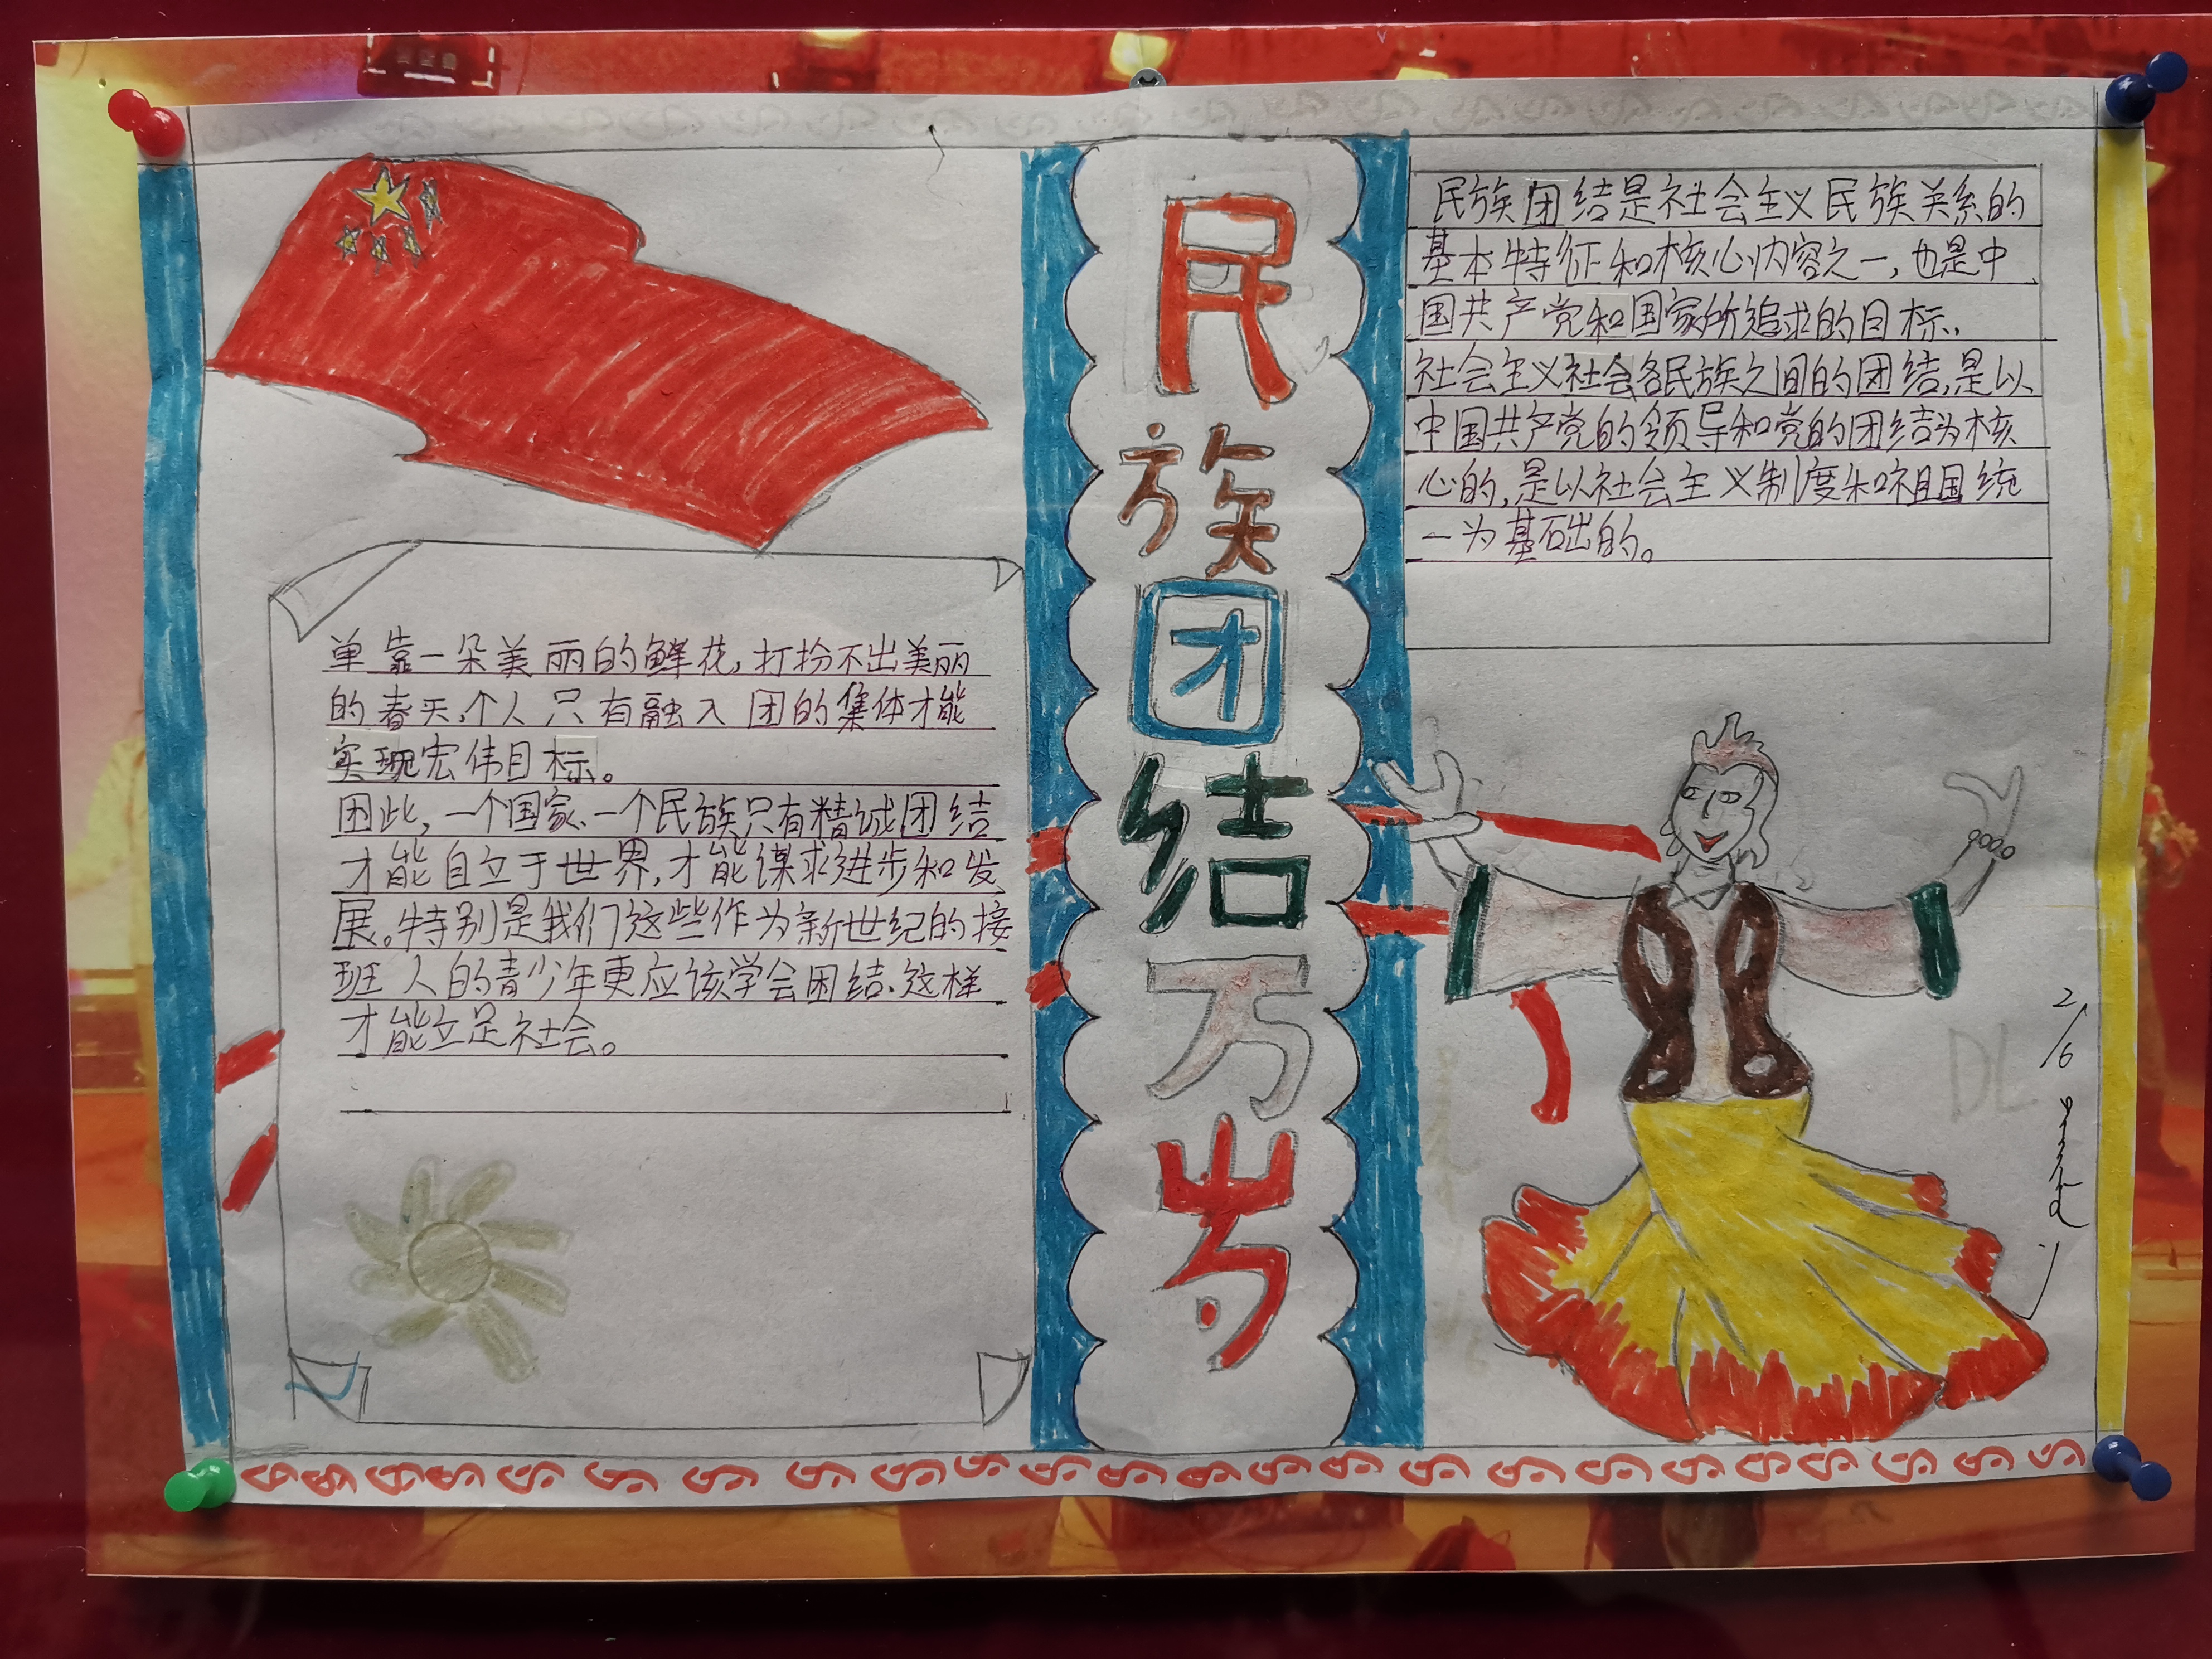 民族团结万岁
单靠一朵美丽的鲜花,打扮不出美丽
的春天,个人只有融入团的集体才能
实现宏伟目标。
因此,一个国家、一个民族只有精诚团结
才能自立于世界,才能谋求进步和发
展。特别是我们这些作为新世纪的接
班人的青少年更应该学会困结、这样
才能立足社会。
民族团结是社会主义民族关系的
基本特征和核心内容之一,也是中
国共产党和国家所追求的目标、
社会主义社会各民族之间的团结,是以
中国共产党的领导和党的团结为核
心的,是以社会主义制度和祖国统
一为基础的。
DL
2/6